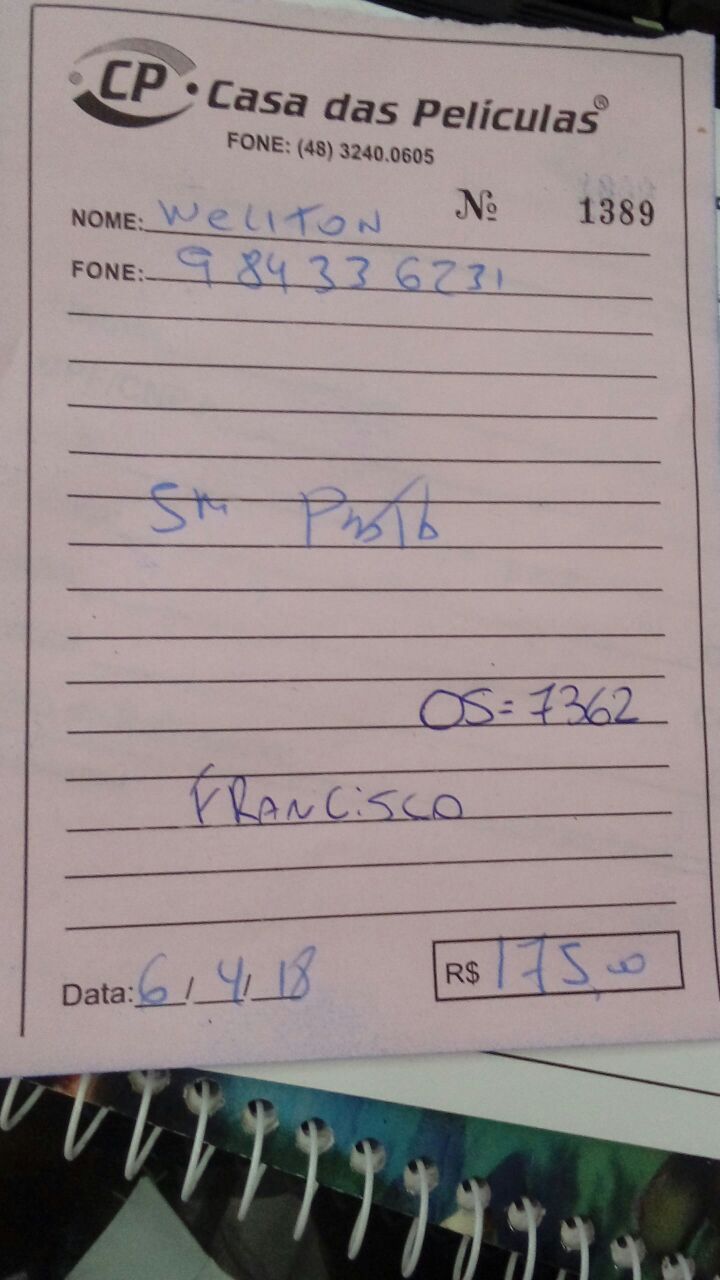 CP • Casa das Películas®
FONE: (48) 3240.0605
Nº 1389
NOME: WELITON
FONE: 9 84336231
5m
OS= 7362
FRANCISCO
Data: 6 / 4 / 18 R$ 175,00